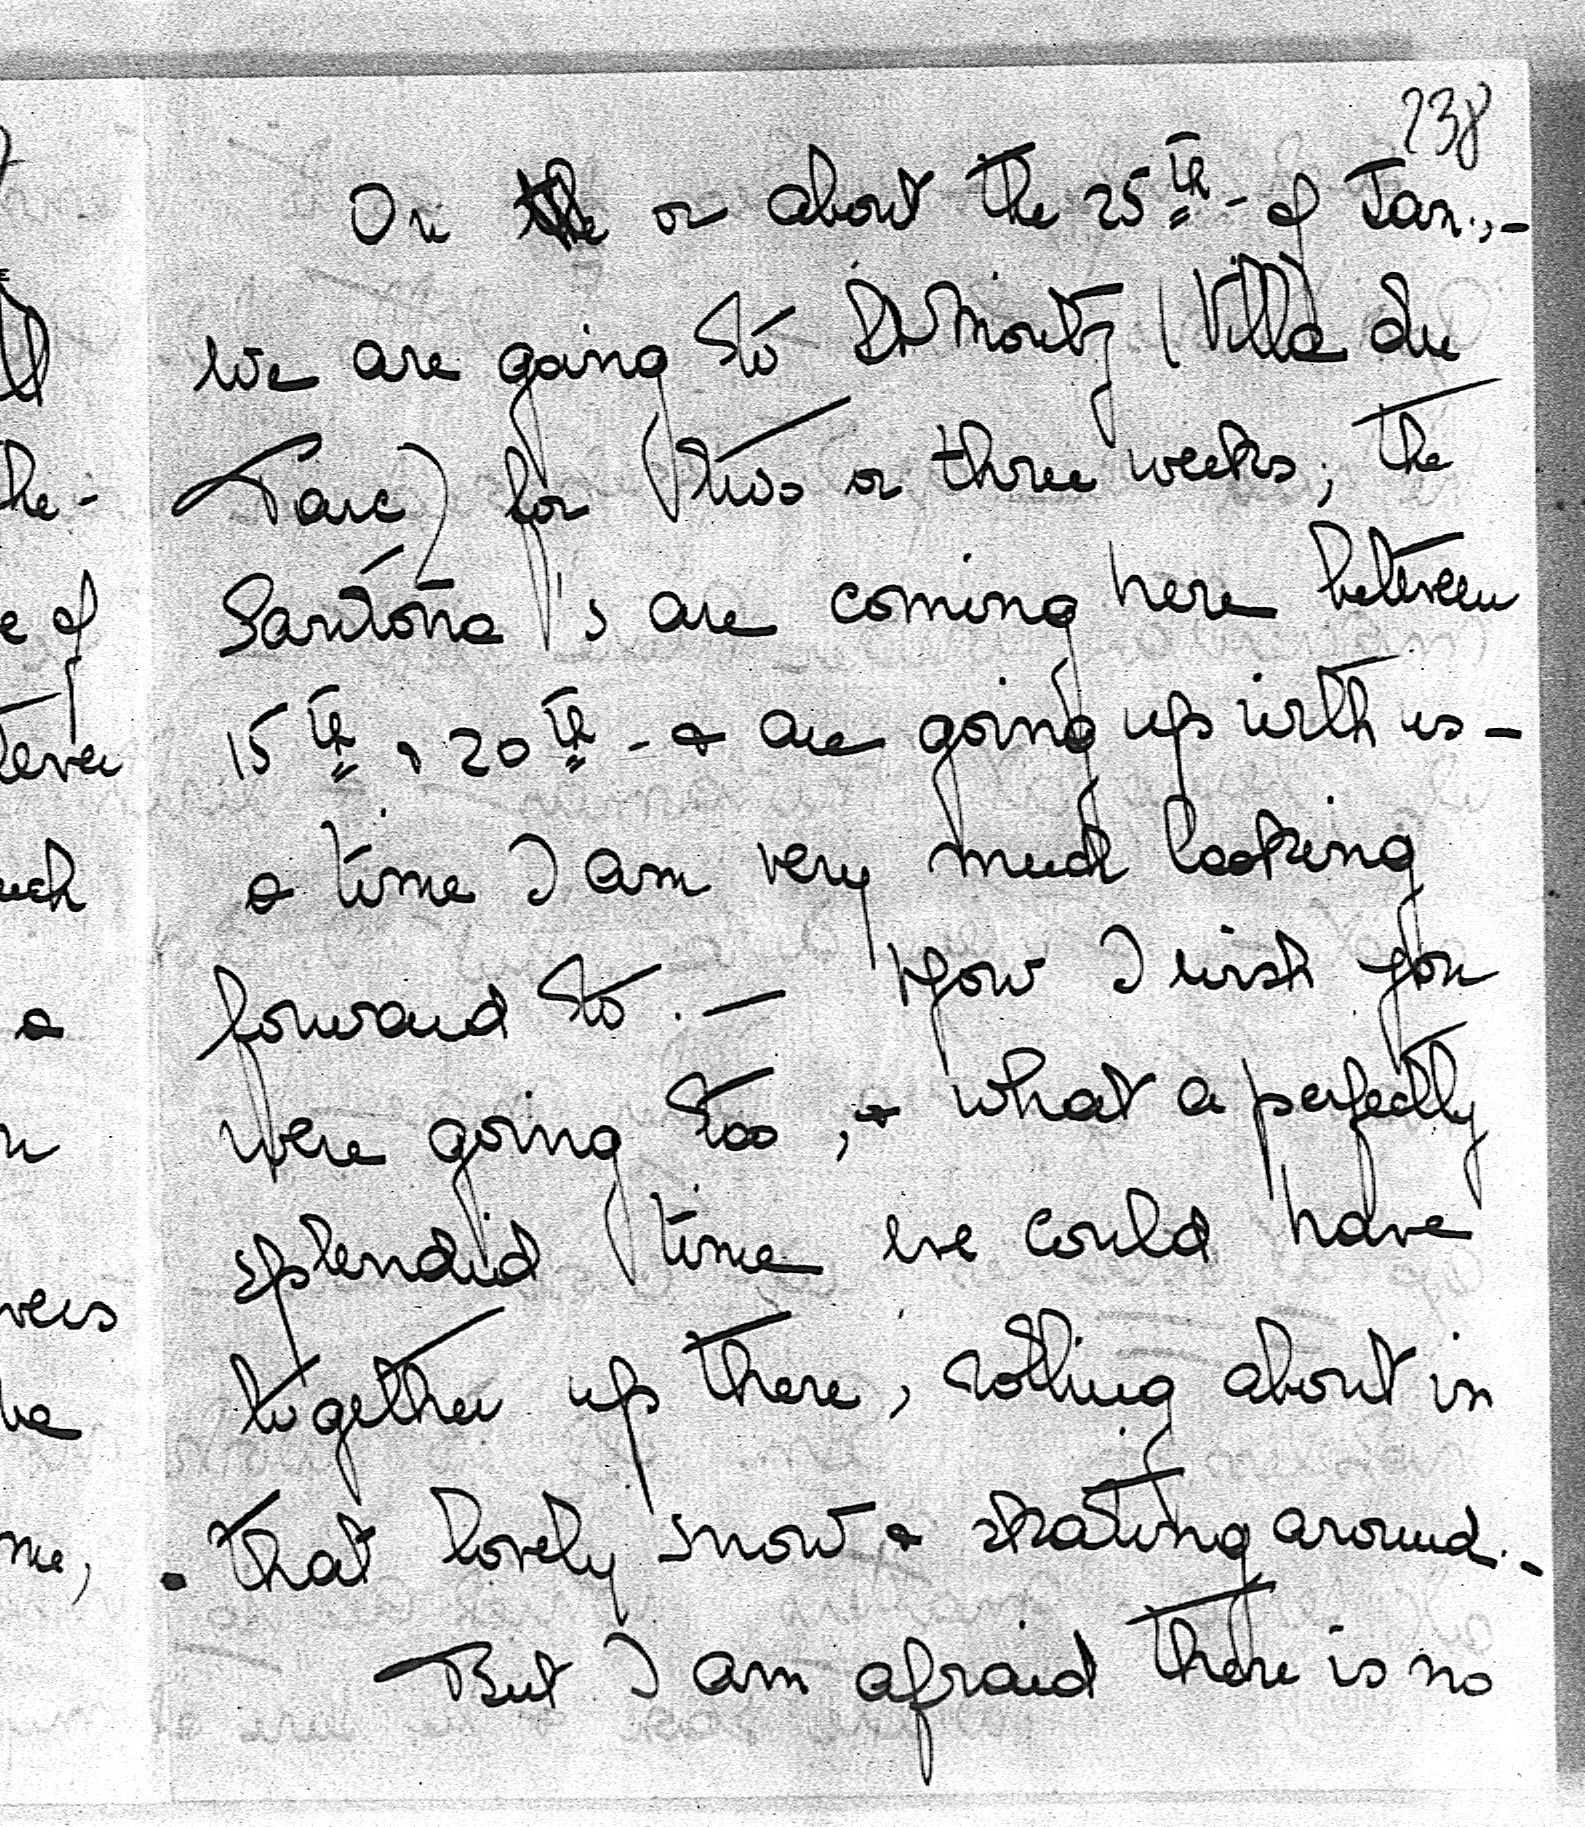 238
On the or about the 25th - of Jan., -
we are going to St Moritz (Villa du
Parc) for two or three weeks; the
Santoña's are coming here between
15th, 20th - & are going up with us -
a time I am very much looking
forward to. — How I wish you
were going too, & what a perfectly
splendid time we could have
together up there, rolling about in
that lovely snow & skating around. -
But I am afraid there is no